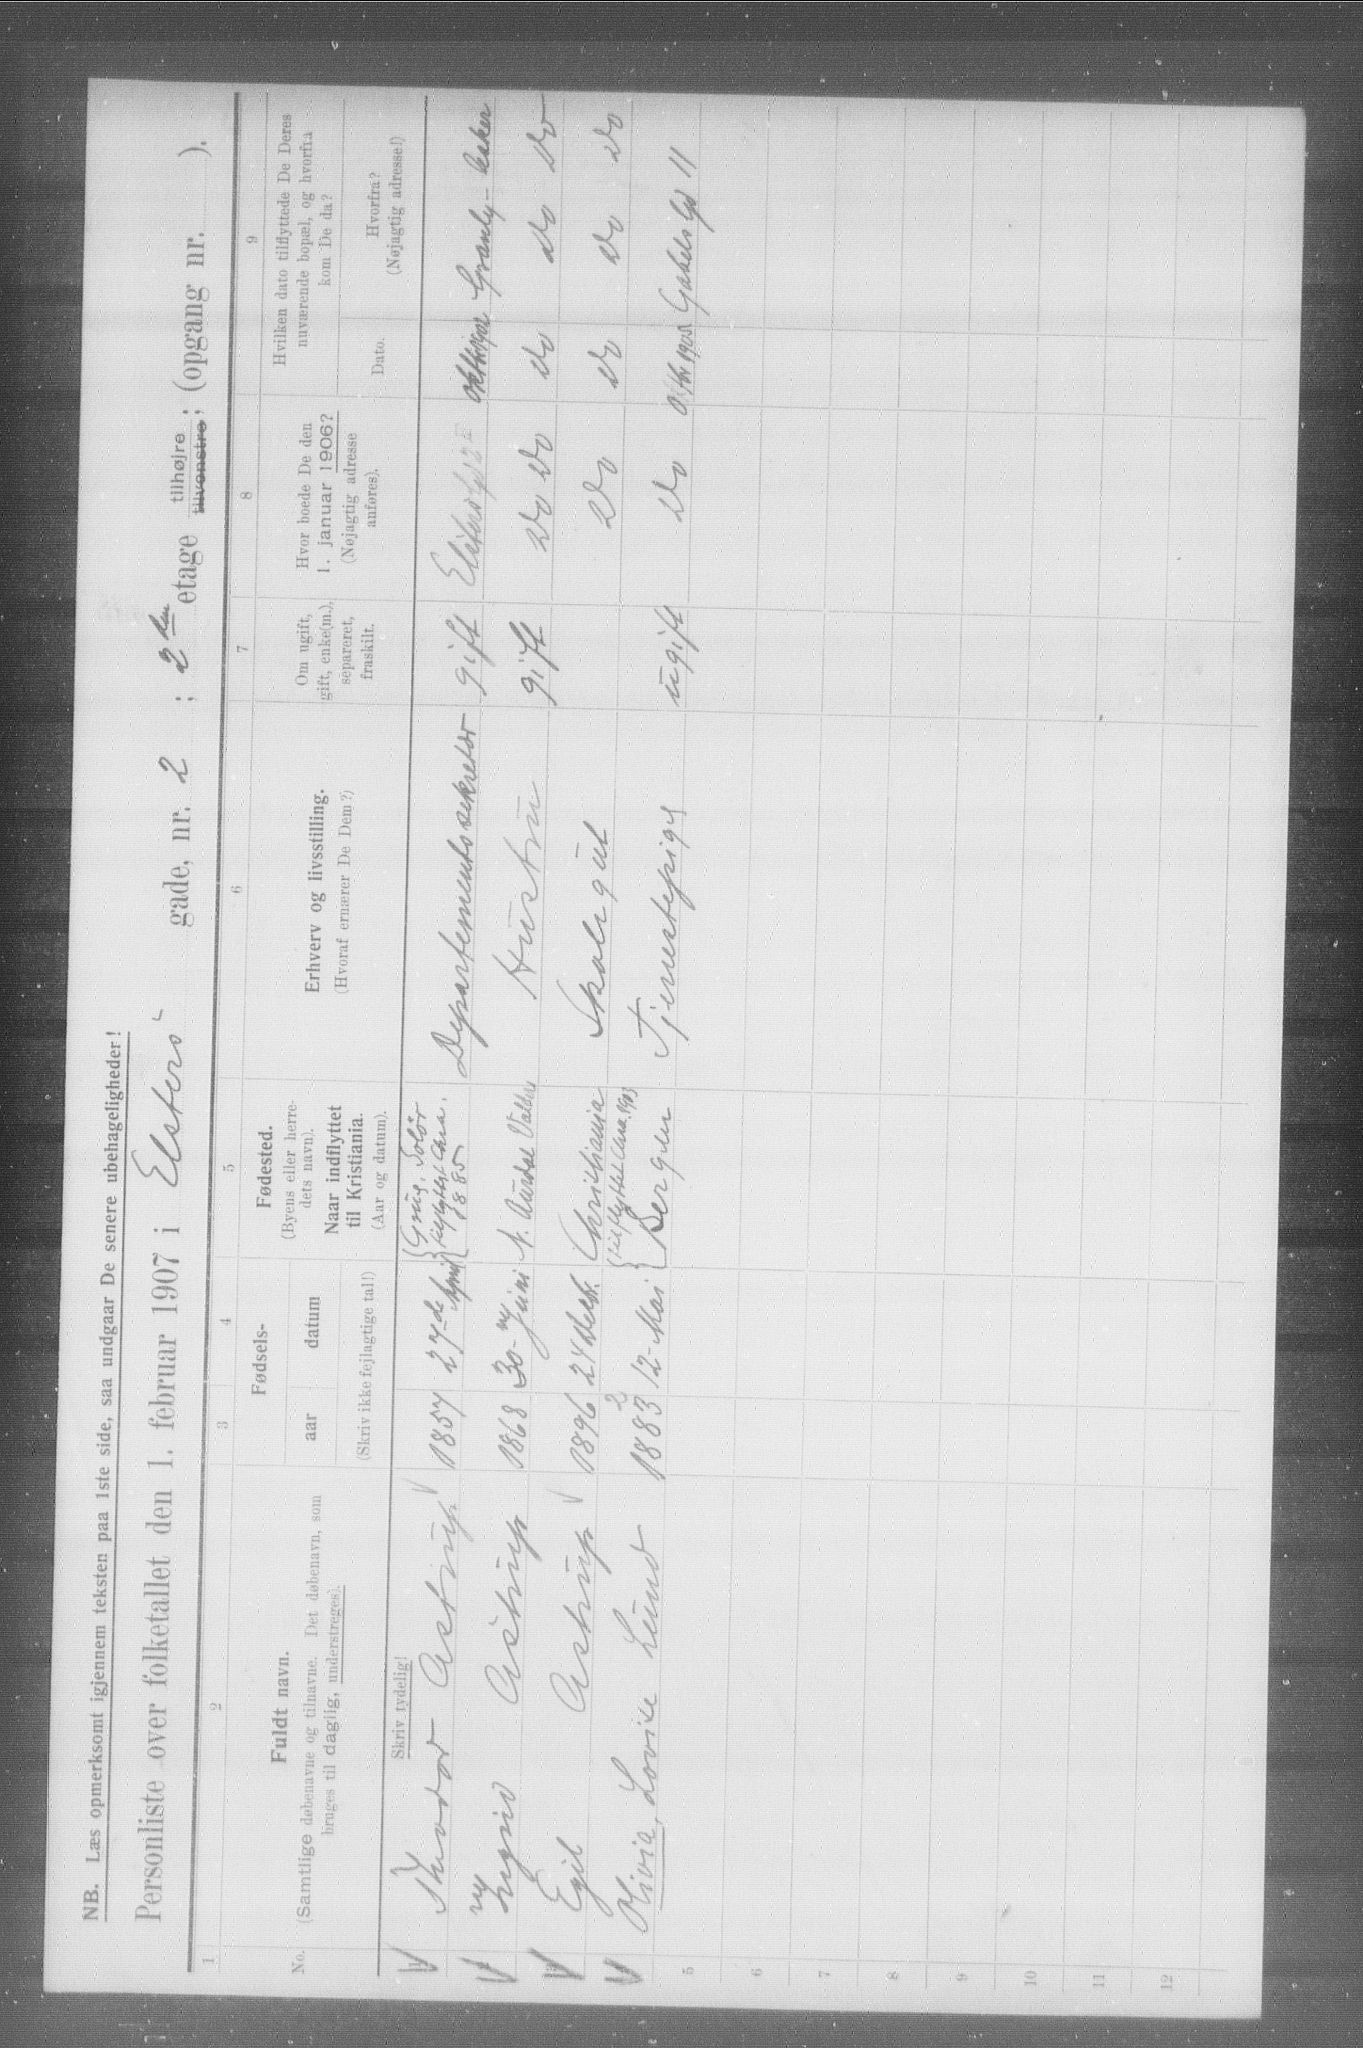 NB. Læs opmerksomt igjennem teksten paa 1ste side, saa undgaar De senere ubehageligheder!
Personliste over folketallet den 1. februar 1907 i Elsters gade, nr. 2 ; 2den etage tilhøjre tilvenstre; (opgang nr. ).
1 2 3 4 5 6 7 8 9
No.
Fuldt navn.
(Samtlige døbenavne og tilnavne. Det døbenavn, som
bruges til daglig, understreges).
Fødsels-
aar datum
(Skriv ikke fejlagtige tal!)
Fødested.
(Byens eller herre-
dets navn).
Naar indflyttet
til Kristiania.
(Aar og datum).
Erhverv og livsstilling.
(Hvoraf ernærer De Dem?)
Om ugift,
gift, enke(m.),
separeret,
fraskilt.
Hvor boede De den
1. januar 1906?
(Nøjagtig adresse
anføres).
Hvilken dato tilflyttede De Deres
nuværende bopæl, og hvorfra
kom De da?
Dato.
Hvorfra?
(Nøjagtig adresse!)
Skriv tydelig!
Thorvor Astrup 1857 27de April Grue, Solør Departementssekretær gift Oktbr Granly - Asker
1885
Astrup 1868 30 Juni N. Aurdal Valders Hustru gift Do Do Do Do Do
Egil Astrup 1896 24 Decbr. Christiania Skolegut Do Do Do Do
Olivia, Lovise Lund 1883 2 12- Mai Bergen Tjenestepige ugift Do Gabels Gd 11
5
6
7
8
9
10
11
12